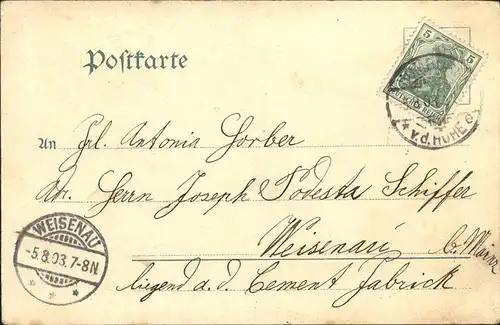 Postkarte
5
v.d. HÖHE
An Frl. Antonia Gorber
Adr. Herrn Joseph Podesta Schiffer
Weisenau b. Mainz
liegend a. d. Cement Fabrick
WEISENAU
-5.8.03.7-8N.